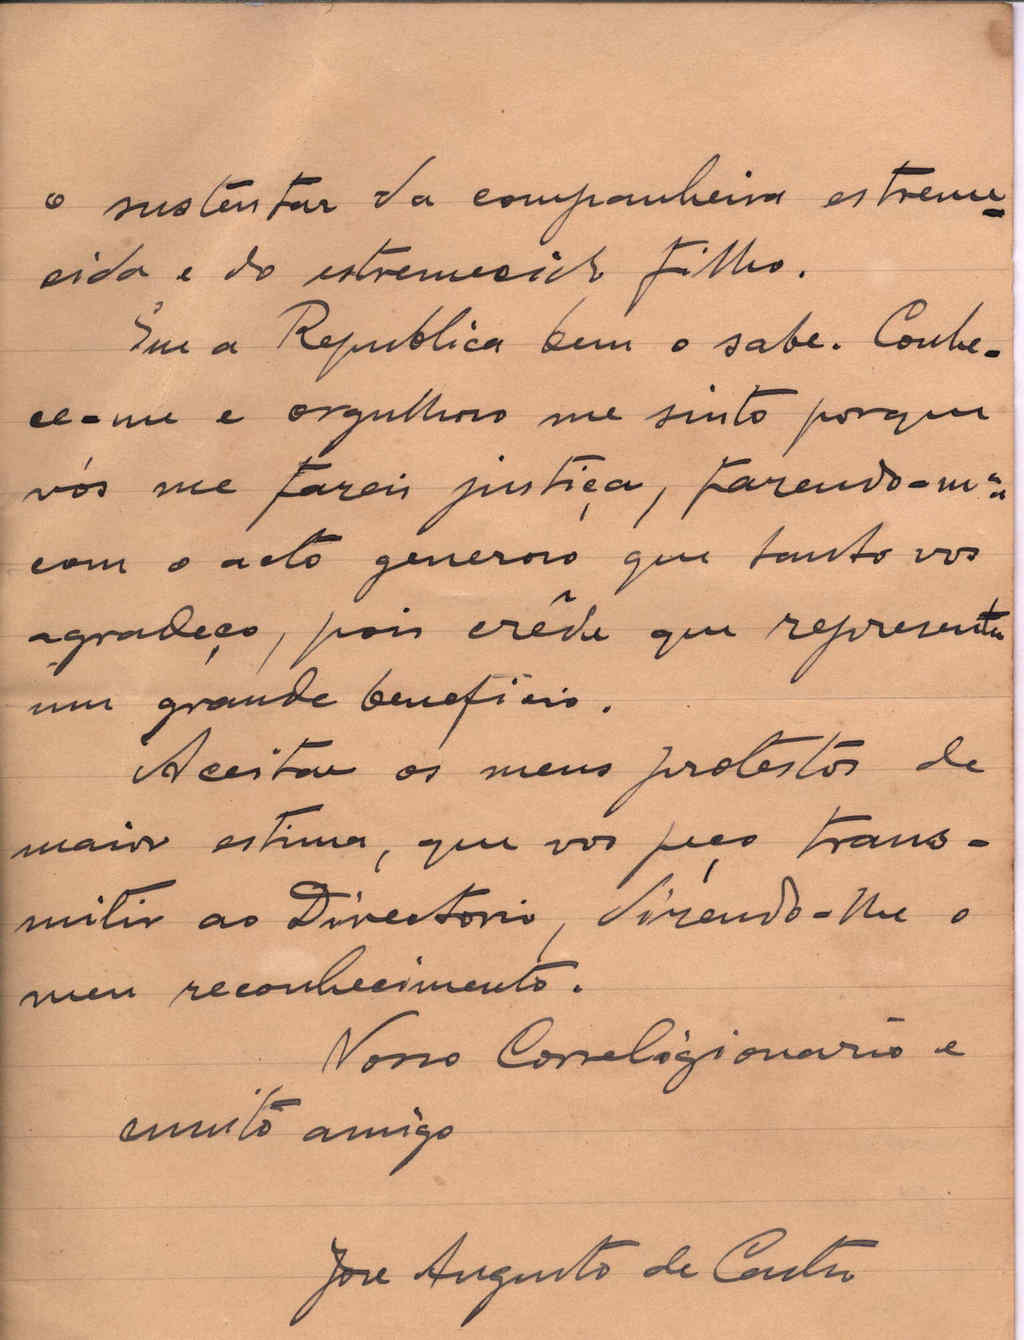 o sustentar da companheira estreme-
cida e do estremecido filho.
Que a Republica bem o sabe. Conhe-
ce-me e orgulhoso me sinto porque
vós me fareis justiça, fazendo-m'a
com o acto generoso que tanto vos
agradeço, pois crêde que representa
um grande beneficio.
Aceitae os meus protestos de
maior estima, que vos peço trans-
mitir ao Directorio, dizendo-lhe o
meu reconhecimento.
Vosso Correligionario e
muito amigo
José Augusto de Castro